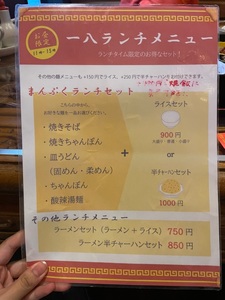 お昼
限定
一八ランチメニュー
ランチタイム限定のお得なセット!
その他の麺メニューも+150円でライス、+250円で半チャーハンを付けできます。
まんぷくランチセット
こちらの中から、
お好きな麺を一つお選びください。
・焼きそば
・焼きちゃんぽん
・皿うどん
(固めん・柔めん)
・ちゃんぽん
・酸辣湯麺
+
ライスセット
900円
or
半チャーハンセット
1000円
その他ランチメニュー
ラーメンセット(ラーメン+ライス) 750円
ラーメン半チャーハンセット 850円